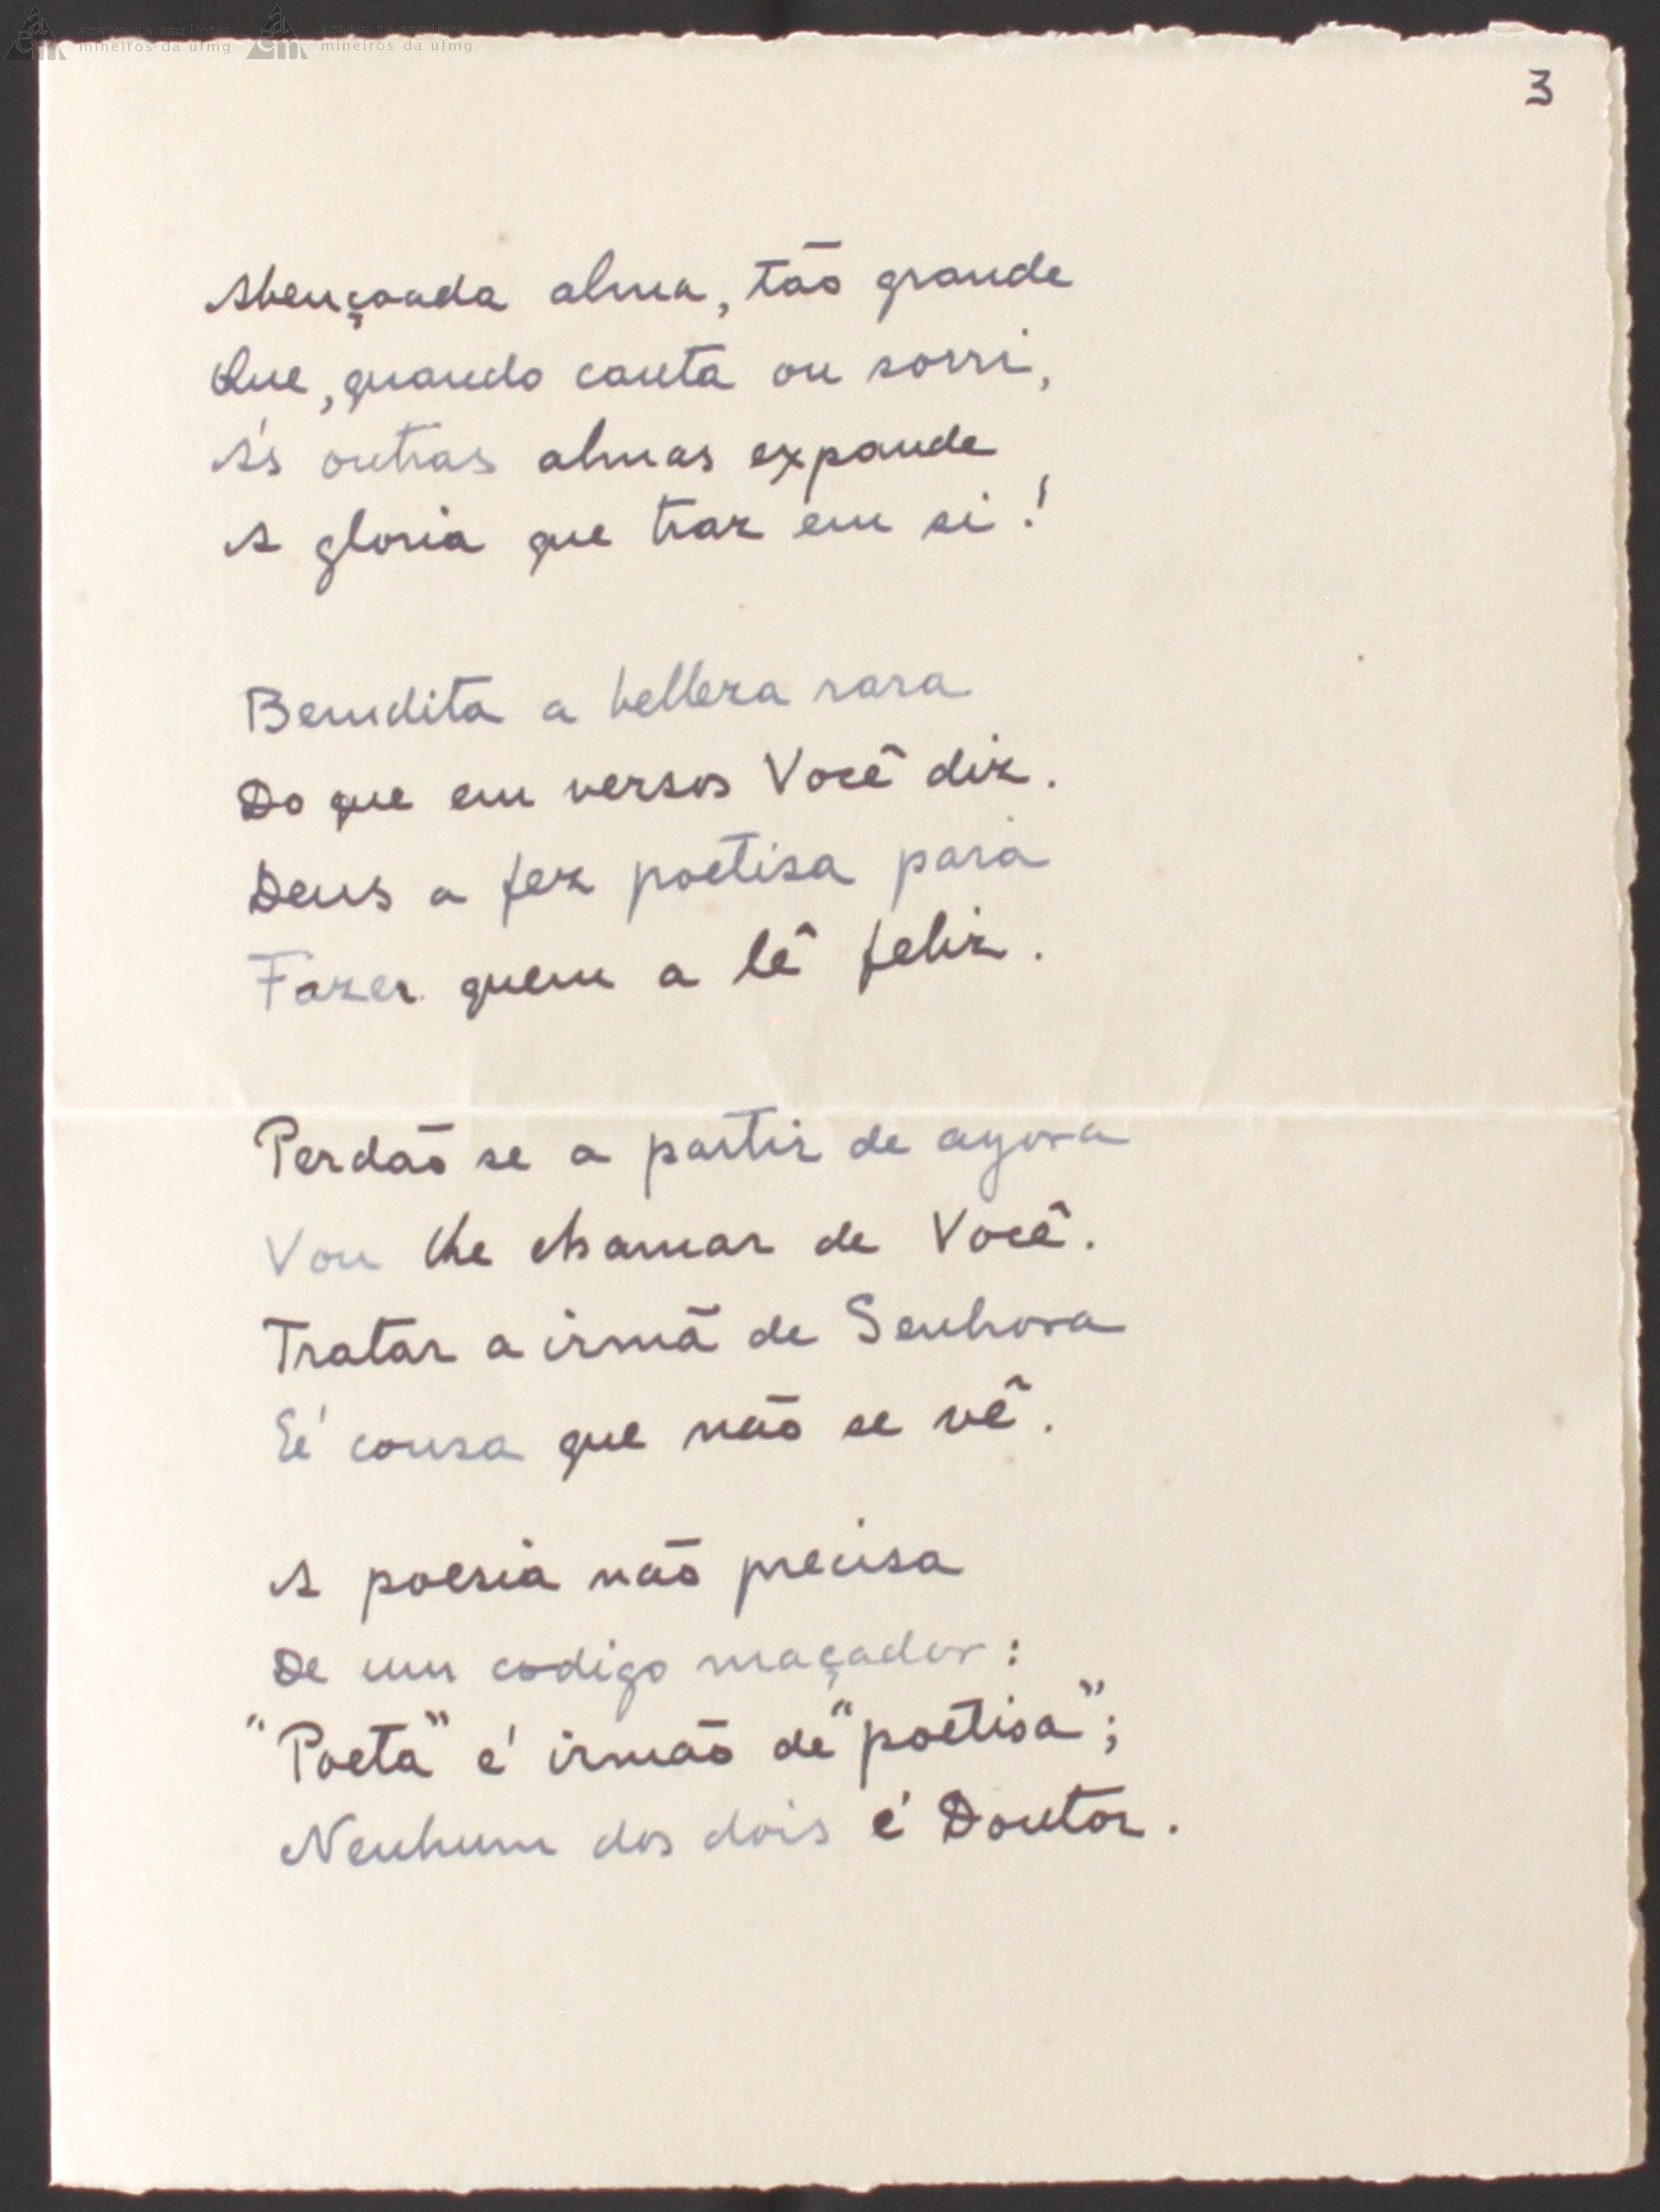 acervo de escritores acervo de escritores
mineiros da ufmg mineiros da ufmg
3
Abençoada alma, tão grande
Que, quando canta ou sorri,
A's outras almas expande
A gloria que traz em si!
Bemdita a belleza rara
Do que em versos Você diz.
Deus a fez poetisa para
Fazer quem a lê feliz.
Perdão se a partir de agora
Vou lhe chamar de Você.
Tratar a irmã de Senhora
E' cousa que não se vê.
A poesia não precisa
De um codigo maçador:
"Poeta" é irmão de "poetisa";
Nenhum dos dois é Doutor.